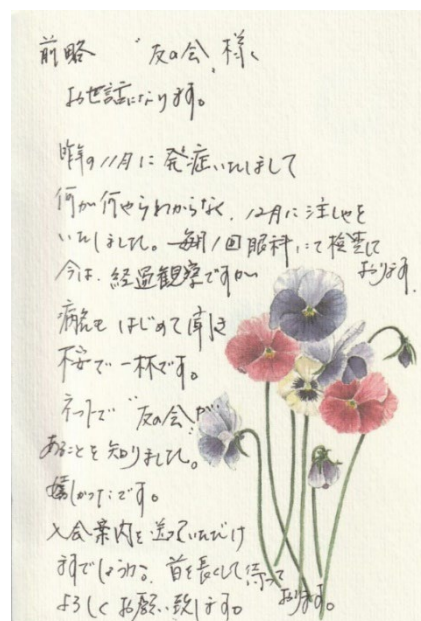 前略 “友の会”様
お世話になります。
昨年11月に発症いたしまして
何が何やらわからなく、12月に注しゃを
いたしました。毎月1回眼科にて検査して
おります。
今は、経過観察ですが
病名もはじめて聞き
不安で一杯です。
ネットで“友の会”が
あることを知りました。
嬉しかったです。
入会案内を送っていただけ
ますでしょうか。首を長くして待って
おります。
よろしくお願い致します。